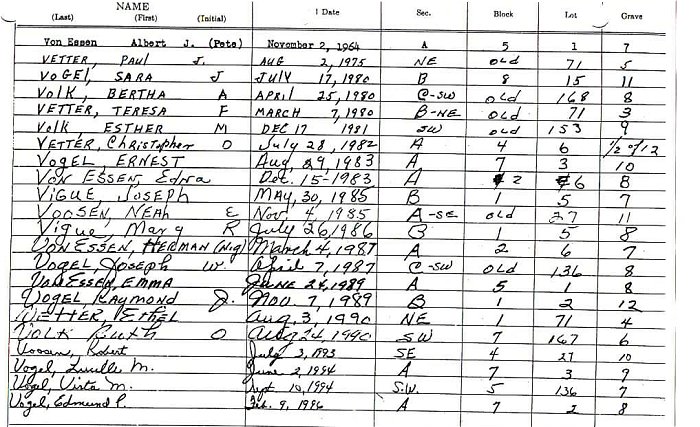 NAME
(Last) (First) (Initial) Date Sec. Block Lot Grave
Von Essen Albert J. (Pete) November 2, 1964 A 5 1 7
VETTER, PAUL J. AUG 2, 1975 NE OLD 71 5
VOGEL, SARA J JULY 17, 1980 B 8 15 11
VOLK, BERTHA A APRIL 25, 1980 C-SW OLD 168 8
VETTER, TERESA F MARCH 7, 1980 B-NE OLD 71 3
VOLK, ESTHER M DEC 17 1981 SW OLD 153 9
VETTER, Christopher O July 28, 1982 A 4 6 1/2 of 12
VOGEL ERNEST Aug, 29, 1983 A 7 3 10
VON ESSEN, Edna Oct. 15-1983 A 2 6 8
VIGUE, JOSEPH MAY, 30, 1985 B 1 5 7
VOOSEN, NEAh E Nov, 4, 1985 A-SE OLD 27 11
Vigue, Mary R July 26, 1986 B 1 5 8
VON ESSEN, HERMAN (Nig) March 4, 1987 A 2 6 7
Vogel, Joseph W. April 7, 1987 C-SW OLD 136 8
VON ESSEN, EMMA JUNE 24, 1989 A 5 1 8
Vogel, Raymond J. Nov. 7, 1989 B 1 2 12
VETTER, Ethel Aug, 3, 1990 NE 1 71 4
VOLK Ruth O Aug 24, 1990 SW 7 167 6
Voosen, Robert July 3, 1993 SE 4 27 10
Vogel, Lucille M. June 2, 1994 A 7 3 9
Vogel, Vista M. Sept. 10, 1994 S.W. 5 136 7
Vogel, Edmund P. Feb. 9, 1996 A 7 2 8